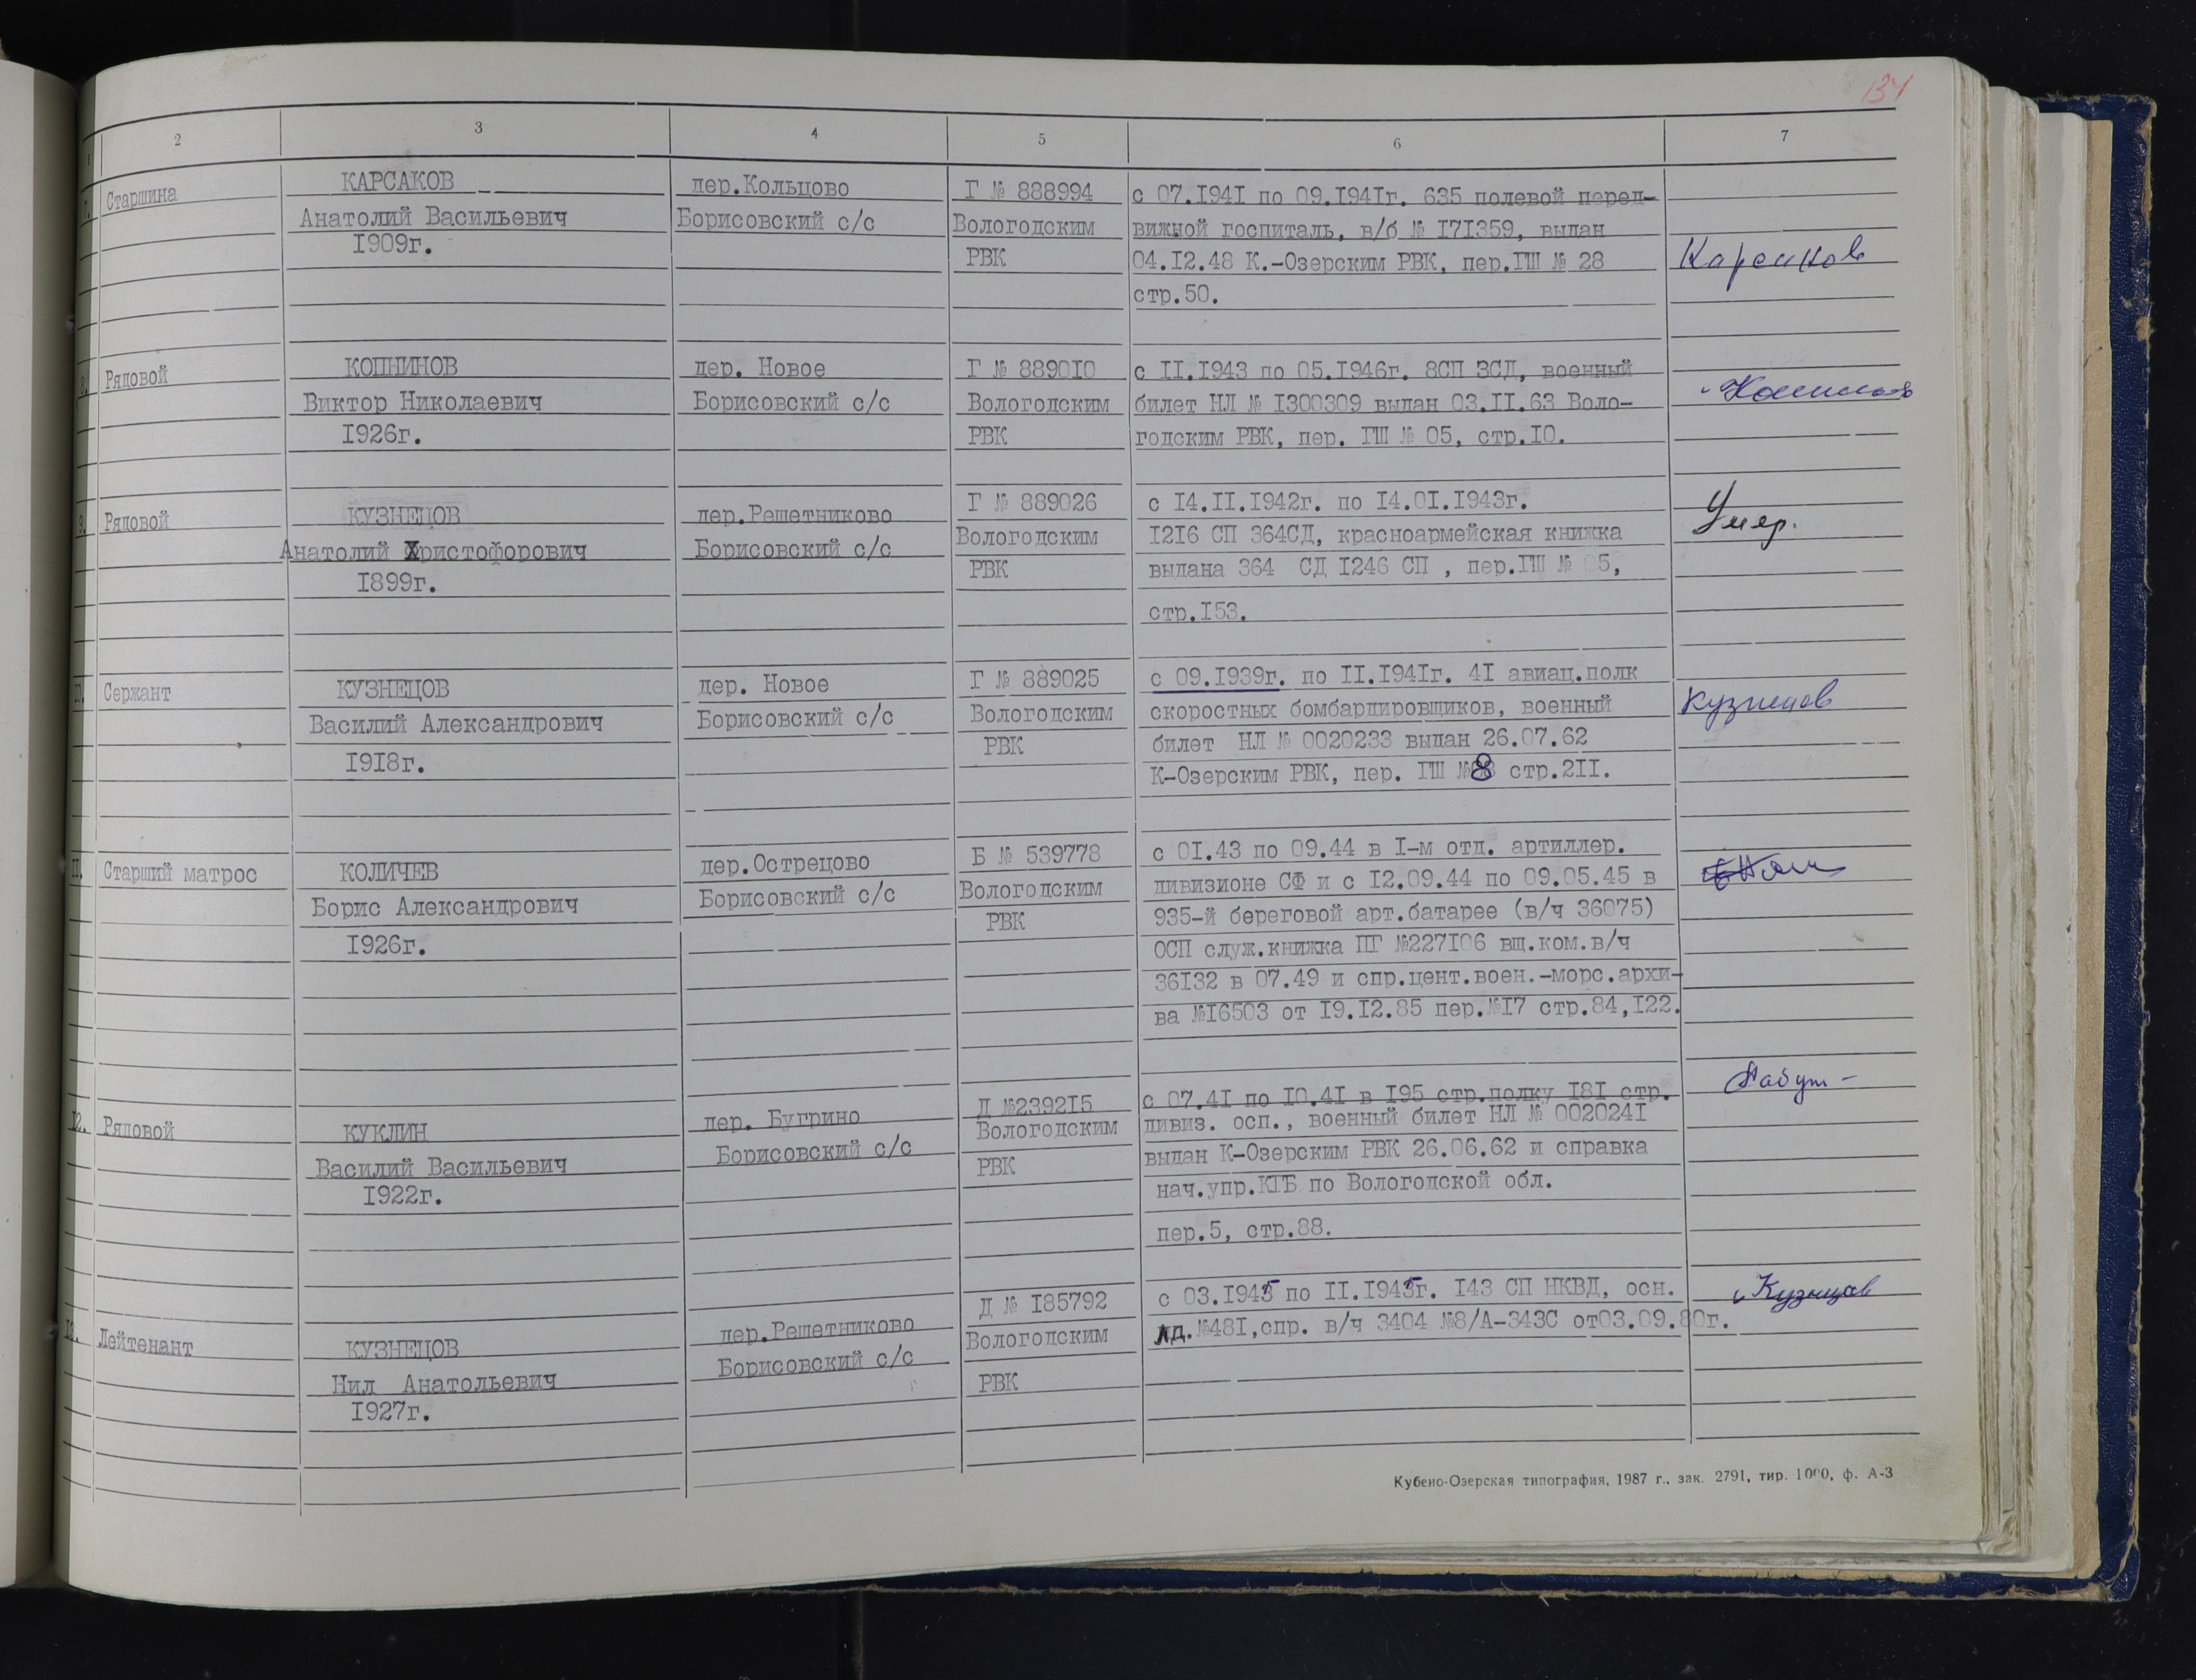 134
2 3 4 5 6 7
7. Старшина
КАРСАКОВ
Анатолий Васильевич
1909г.
дер.Кольцово
Борисовский с/с
Г № 888994
Вологодским
РВК
с 07.1941 по 09.1941г. 635 полевой перед-
вижной госпиталь, в/б № 171359, выдан
04.12.48 К.-Озерским РВК, пер.ГШ № 28
стр.50.
Карсаков
8. Рядовой
КОПНИНОВ
Виктор Николаевич
1926г.
дер. Новое
Борисовский с/с
Г № 889010
Вологодским
РВК
с 11.1943 по 05.1946г. 8СП 3СД, военный
билет НЛ № 1300309 выдан 03.11.63 Воло-
годским РВК, пер. ГШ № 05, стр.10.
9. Рядовой
КУЗНЕЦОВ
Анатолий Христофорович
1899г.
дер.Решетниково
Борисовский с/с
Г № 889026
Вологодским
РВК
с 14.11.1942г. по 14.01.1943г.
1216 СП 364СД, красноармейская книжка
выдана 364 СД 1246 СП , пер.ГШ № 05,
стр.153.
Умер.
10. Сержант
КУЗНЕЦОВ
Василий Александрович
1918г.
дер. Новое
Борисовский с/с
Г № 889025
Вологодским
РВК
с 09.1939г. по 11.1941г. 41 авиац.полк
скоростных бомбардировщиков, военный
билет НЛ № 0020233 выдан 26.07.62
К-Озерским РВК, пер. ГШ №8 стр.211.
Кузнецов
11. Старший матрос
КОЛИЧЕВ
Борис Александрович
1926г.
дер.Острецово
Борисовский с/с
Б № 539778
Вологодским
РВК
с 01.43 по 09.44 в 1-м отд. артиллер.
дивизионе СФ и с 12.09.44 по 09.05.45 в
935-й береговой арт.батарее (в/ч 36075)
ОСП служ.книжка ПГ №227106 вщ.ком.в/ч
36132 в 07.49 и спр.цент.воен.-морс.архи-
ва №16503 от 19.12.85 пер.№17 стр.84,122.
12. Рядовой
КУКЛИН
Василий Васильевич
1922г.
дер. Бугрино
Борисовский с/с
Д №239215
Вологодским
РВК
с 07.41 по 10.41 в 195 стр.полку 181 стр.
дивиз. осп., военный билет НЛ № 0020241
выдан К-Озерским РВК 26.06.62 и справка
нач.упр.КГБ по Вологодской обл.
пер.5, стр.88.
13. Лейтенант
КУЗНЕЦОВ
Нил Анатольевич
1927г.
дер.Решетниково
Борисовский с/с
Д № 185792
Вологодским
РВК
с 03.1945 по 11.1945г. 143 СП НКВД, осн.
лд.№481,спр. в/ч 3404 №8/А-343С от03.09.80г.
Кузнецов
Кубено-Озерская типография, 1987 г., зак. 2791, тир. 1000, ф. А-3